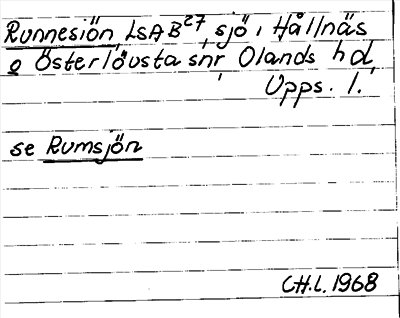 Runnesiön LSAB27, sjö i Hållnäs
o Österlövsta snr Olands hd,
Upps. l.
se Rumsjön
CH.L. 1968